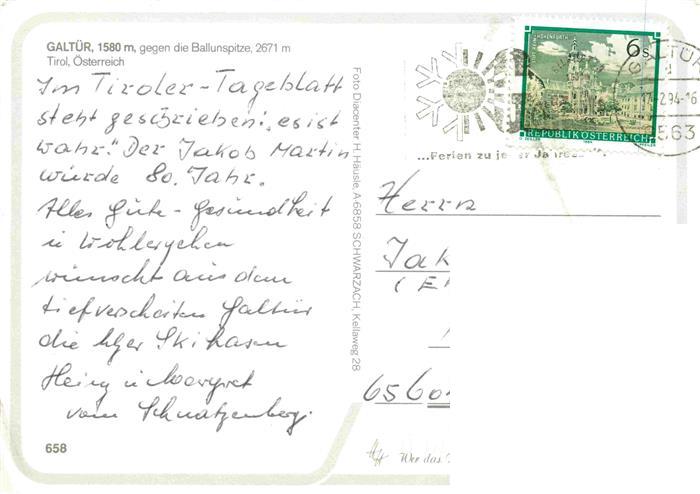 GALTÜR, 1580 m, gegen die Ballunspitze, 2671 m
Tirol, Österreich
Im Tiroler-Tageblatt
steht geschrieben: „es ist
wahr." Der Jakob Martin
wurde 80. Jahr.
Alles Gute - Gesundheit
u Wohlergehen
wünscht aus dem
tiefverschneiten Galtür
die Skihasen
Heinz u Margret
vom
658
Foto Diacenter H. Häusle, A-6858 SCHWARZACH, Kellaweg 28
STIFT HOHENFURTH
6 S
REPUBLIK ÖSTERREICH
GALTÜR
2.94-16
6563
...Ferien zu jeder Jahres
Herrn
Jak
(E
6560
Wer das